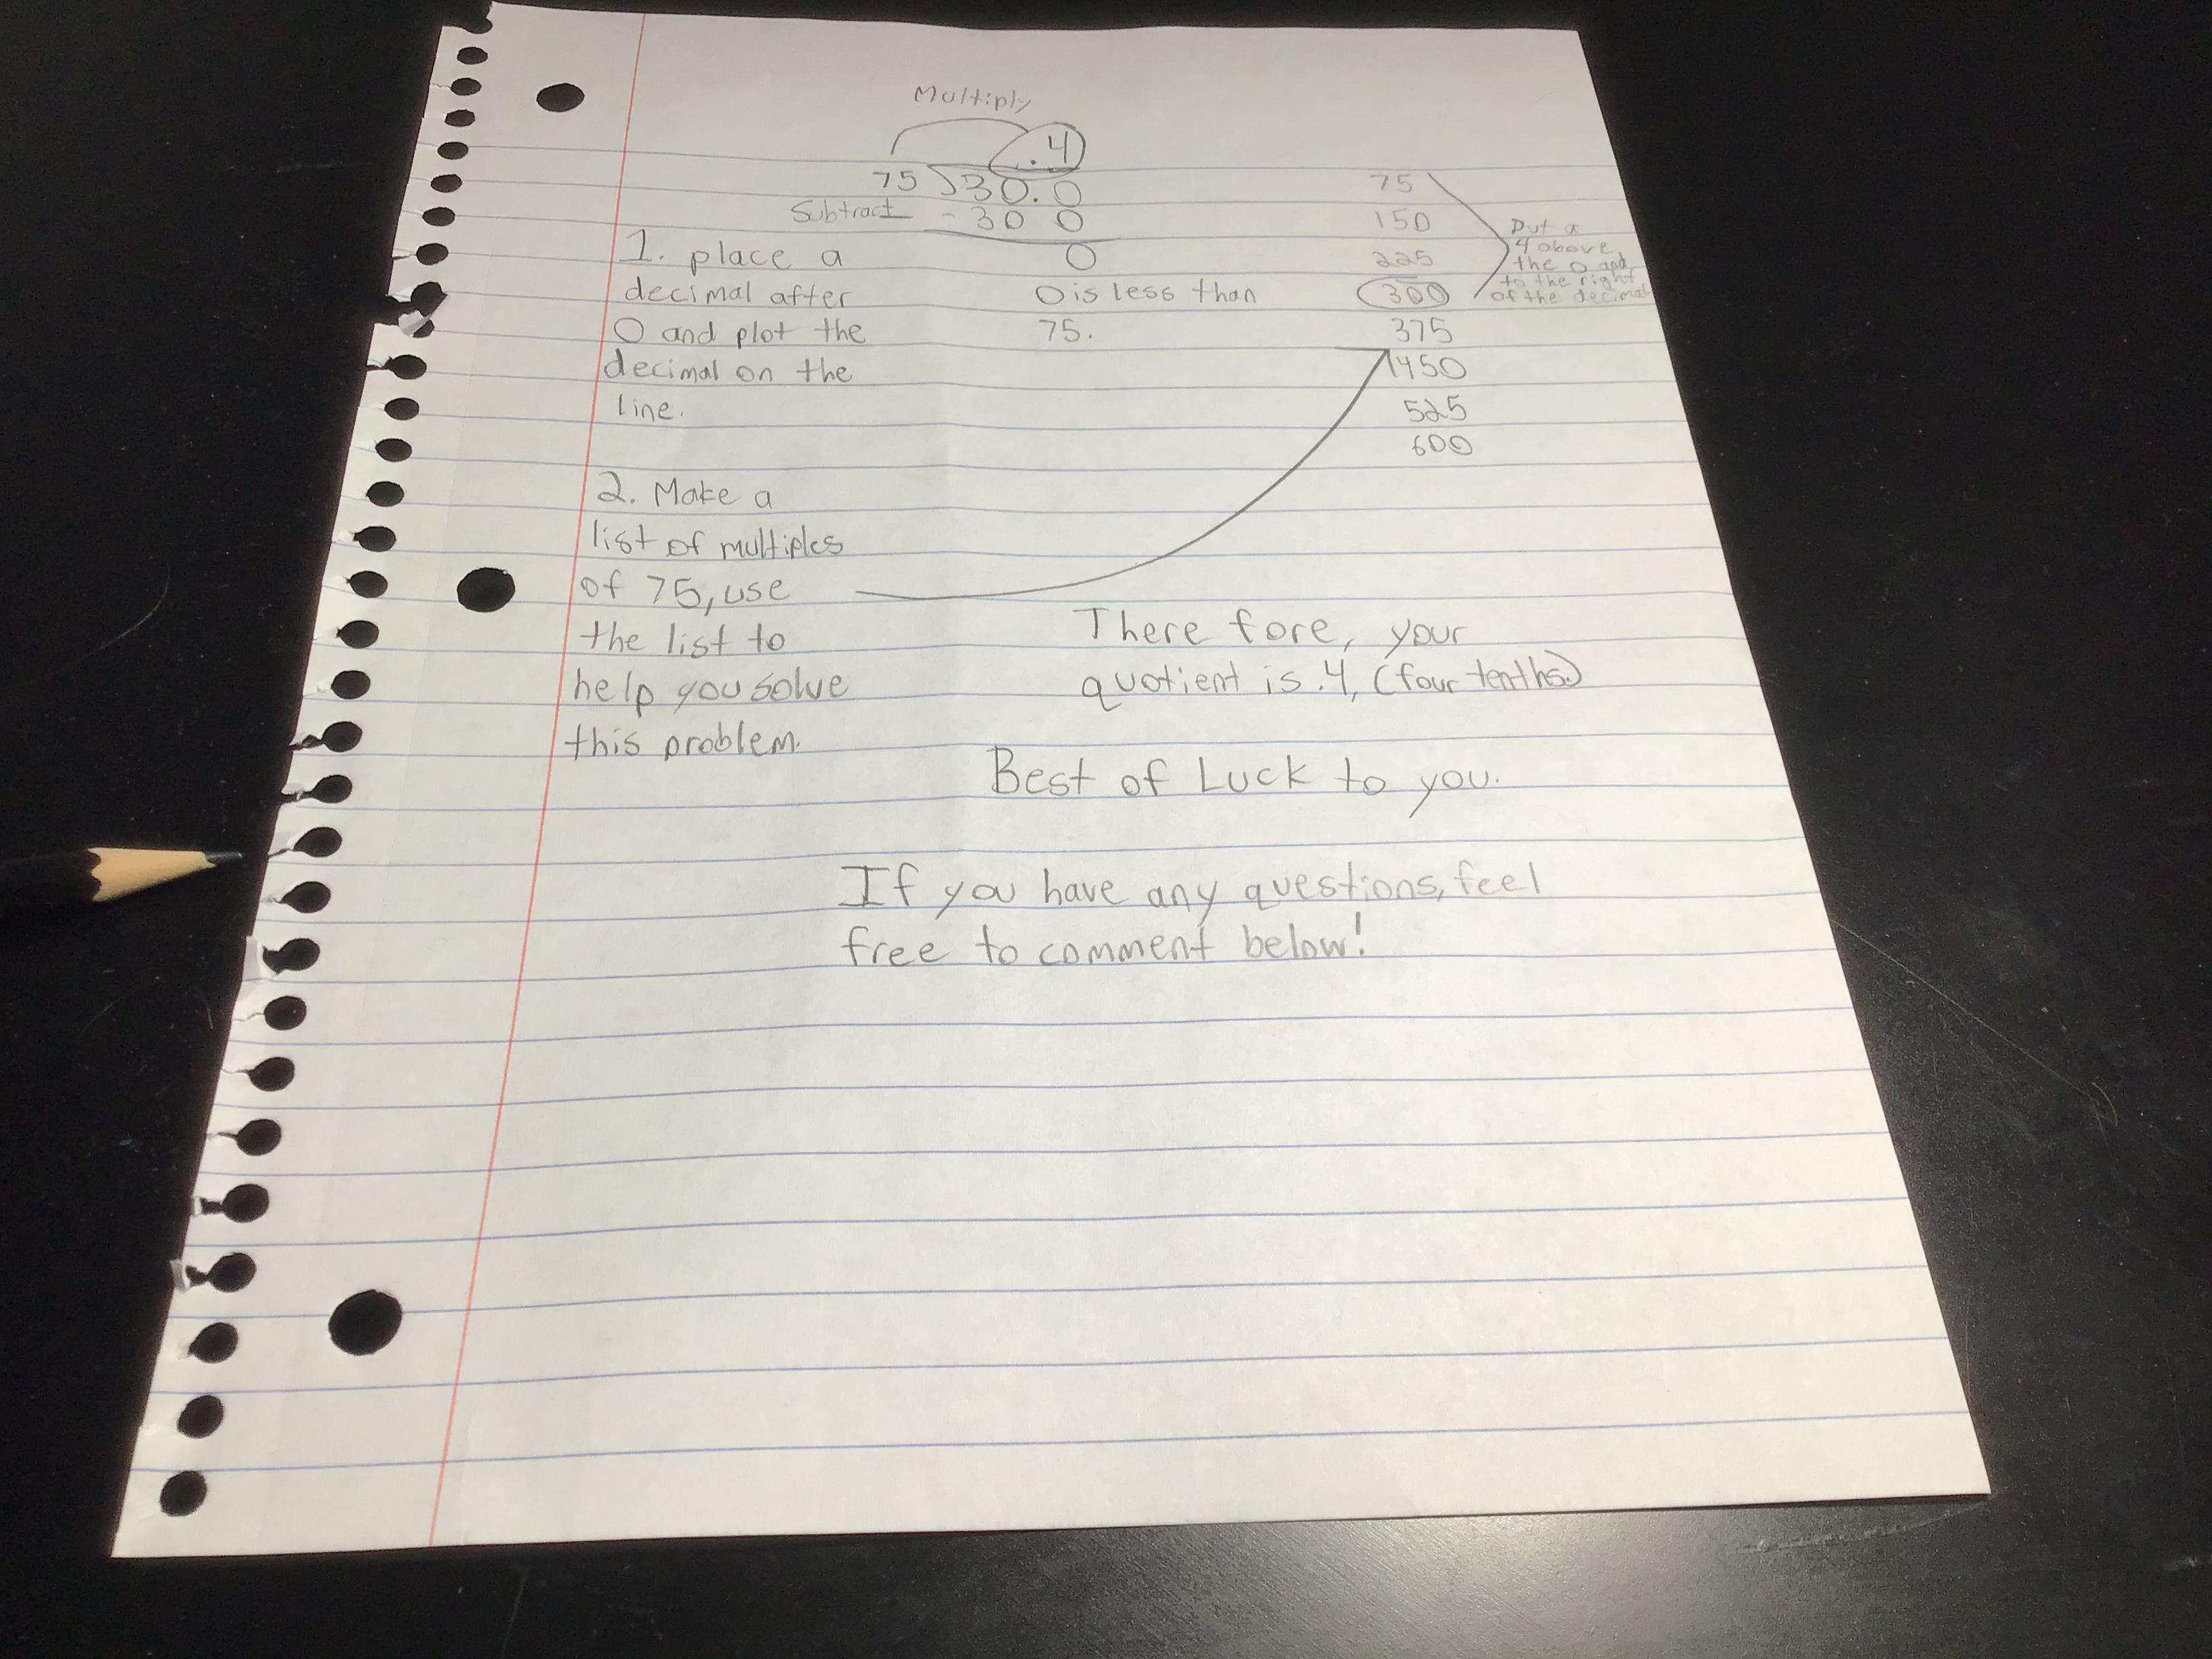 Multiply
.4
75 ) 30.0
Subtract - 30 0
0
1. place a
decimal after
0 and plot the
decimal on the
line.
0 is less than
75.
75
150
225
300
375
450
525
600
Put a
4 above
the 0 and
to the right
of the decimal
2. Make a
list of multiples
of 75, use
the list to
help you solve
this problem.
There fore, your
quotient is .4, (four tenths.)
Best of Luck to you.
If you have any questions, feel
free to comment below!